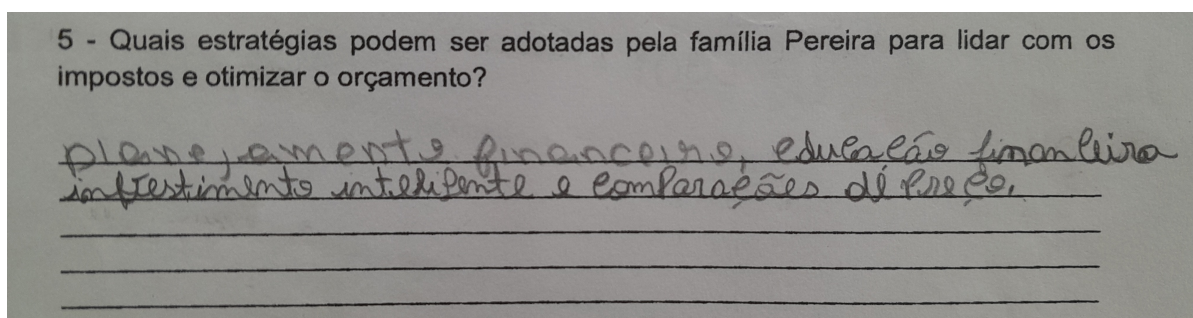 5 - Quais estratégias podem ser adotadas pela família Pereira para lidar com os
impostos e otimizar o orçamento?
planejamento financeiro, educação financeira
infrestimento inteligente e comparações de preço.